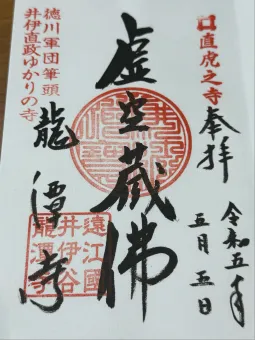 直虎之寺
奉拝
令和五年
五月五日
虚空蔵佛
徳川軍団筆頭
井伊直政ゆかりの寺
龍潭寺
遠江國
井伊谷
龍潭寺